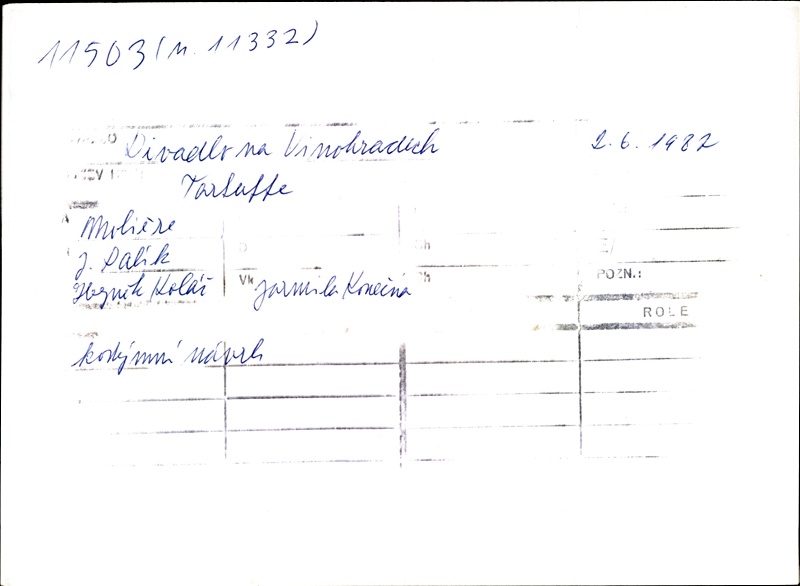 11503 (n. 11332)
Divadlo na Vinohradech 2. 6. 1982
Tartuffe
Molière
J. Palík
Zbyněk Kolář Vk Jarmila Konečná
POZN.:
ROLE
kostýmní návrh